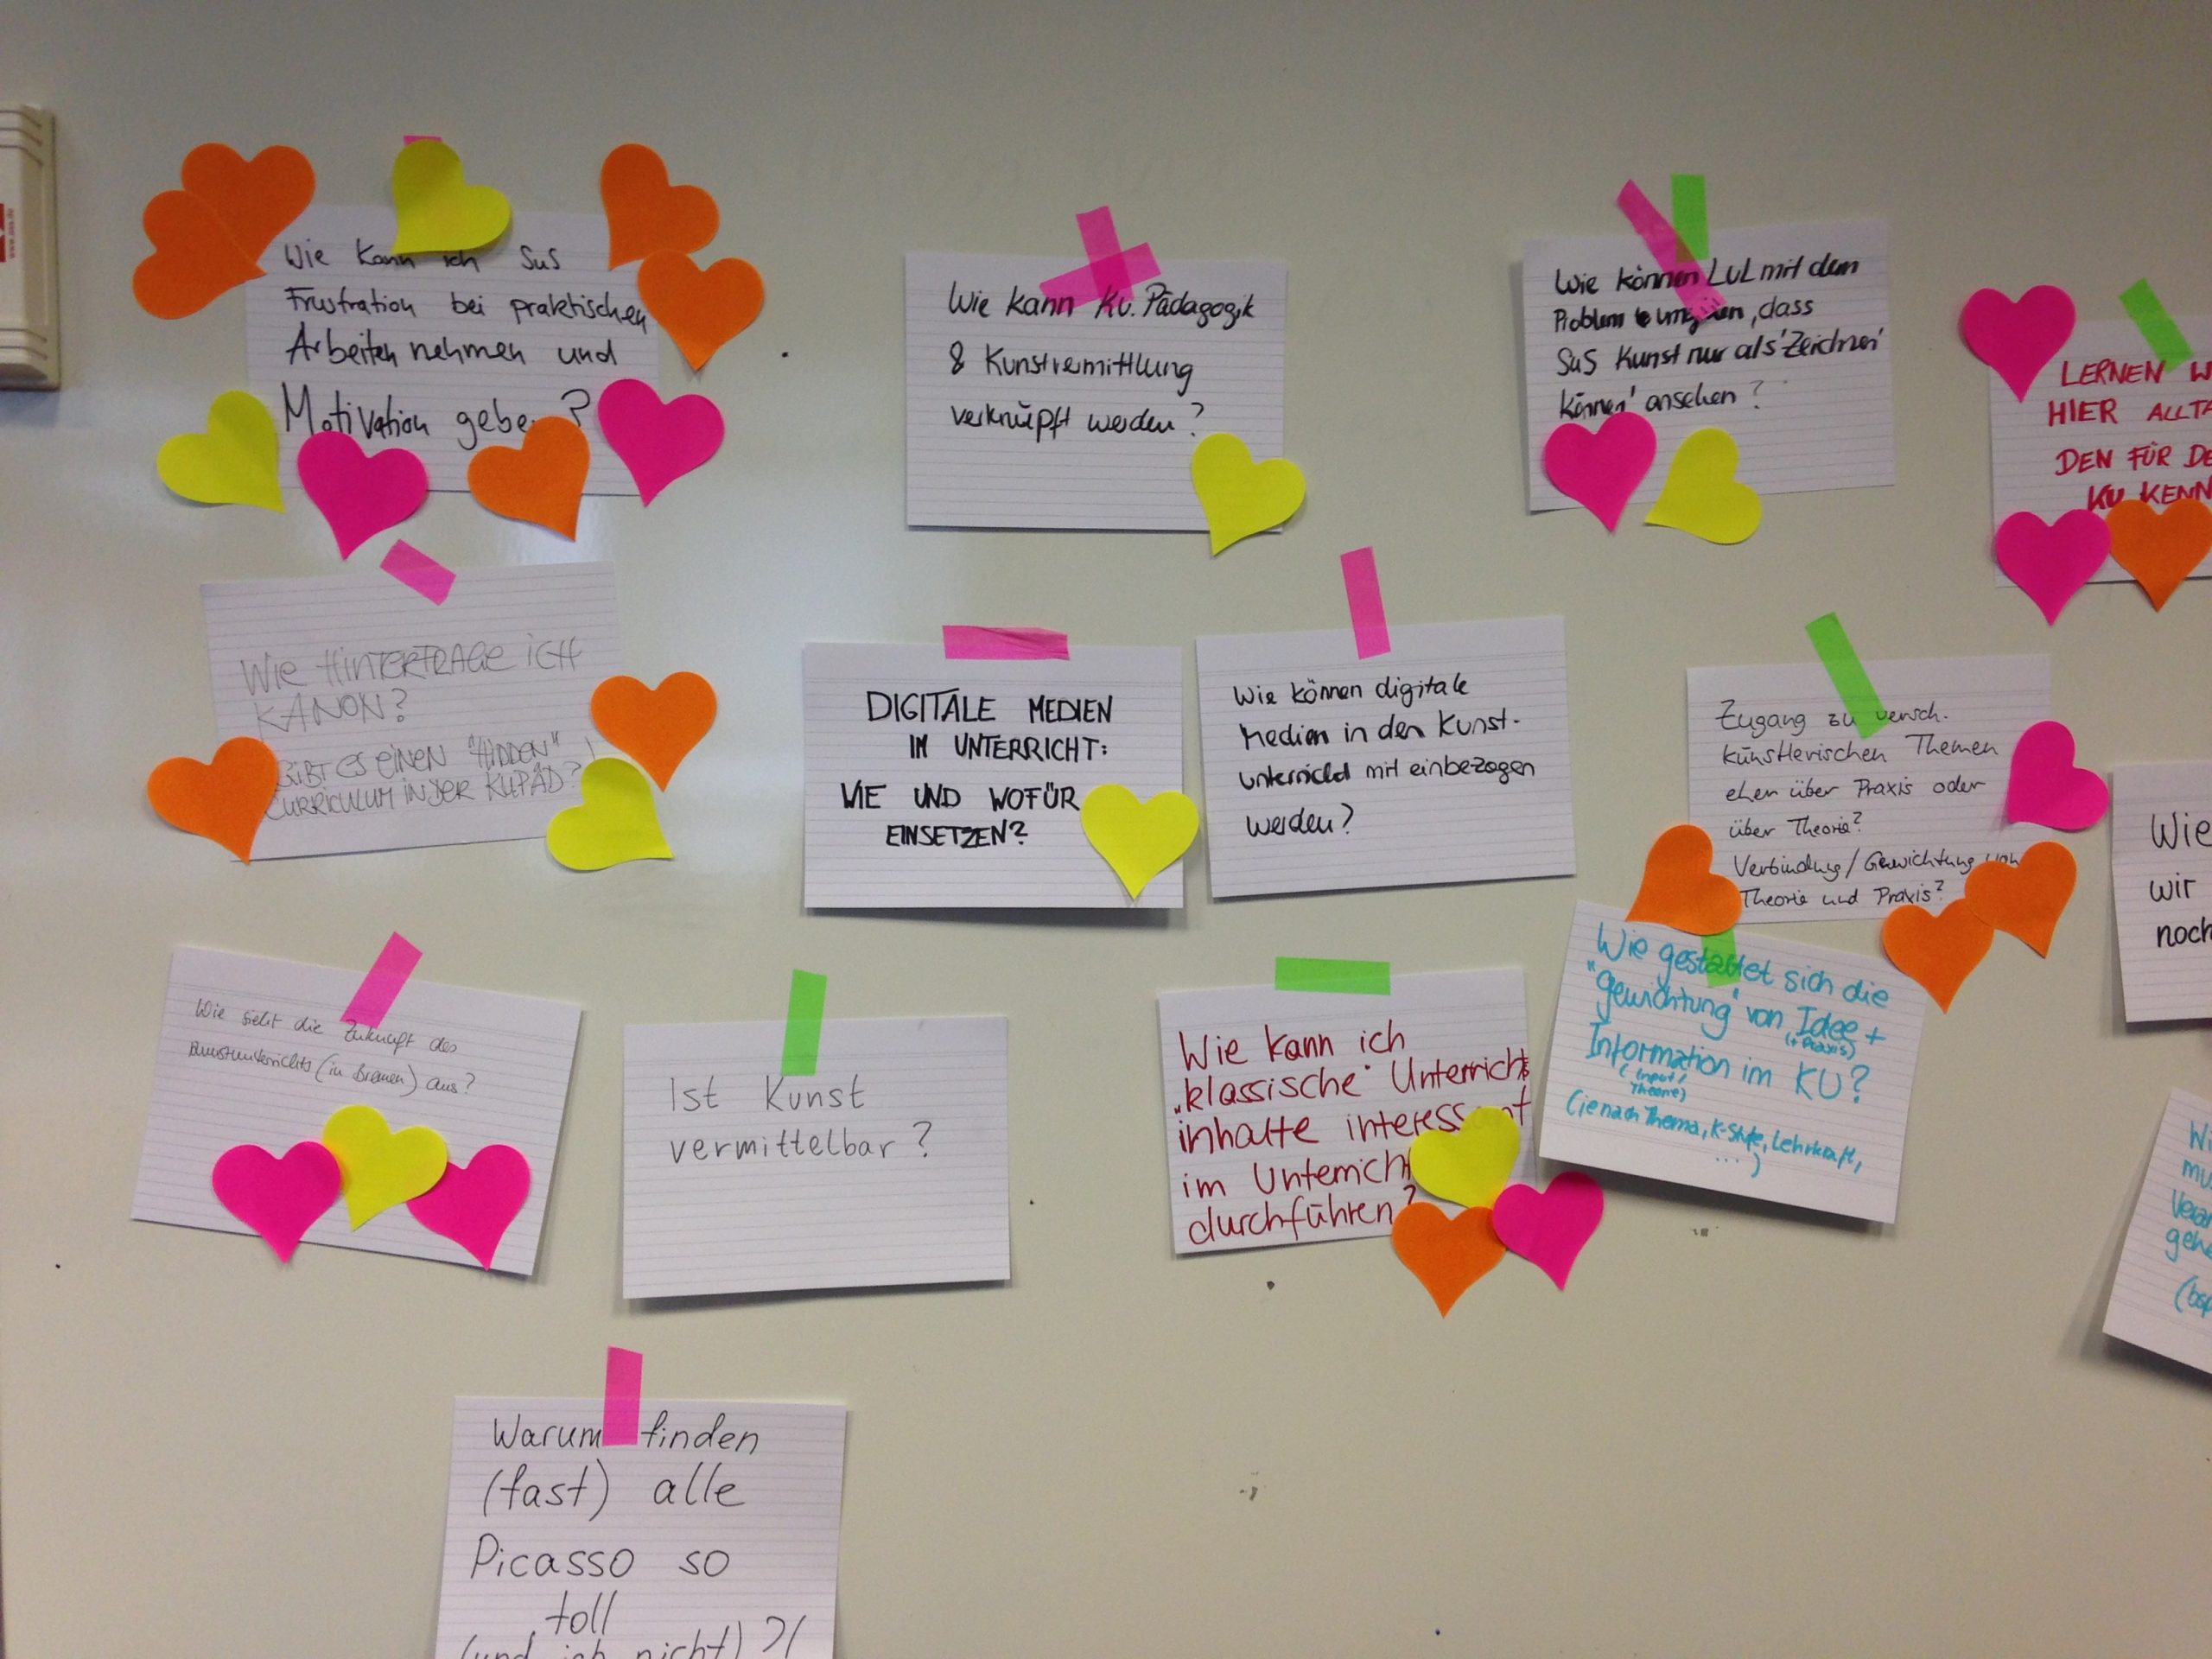 Wie kann ich SuS
Frustration bei praktischen
Arbeiten nehmen und
Motivation geben?
Wie kann Ku. Pädagogik
& Kunstvermittlung
verknüpft werden?
Wie können LuL mit dem
Problem umgehen, dass
SuS Kunst nur als 'Zeichnen
können' ansehen?
LERNEN W
HIER ALLTA
DEN FÜR DE
KU KENN
WIE HINTERFRAGE ICH
KANON?
GIBT ES EINEN "HIDDEN"
CURRICULUM IN DER KUPÄD?
DIGITALE MEDIEN
IM UNTERRICHT:
WIE UND WOFÜR
EINSETZEN?
Wie können digitale
Medien in den Kunst-
unterricht mit einbezogen
werden?
Zugang zu versch.
künstlerischen Themen
eher über Praxis oder
über Theorie?
Verbindung/Gewichtung von
Theorie und Praxis?
Wie
wir
noch
Wie sieht die Zukunft des
Kunstunterrichts (in Bremen) aus?
Ist Kunst
vermittelbar?
Wie kann ich
„klassische" Unterrichts
inhalte interessant
im Unterricht
durchführen?
Wie gestaltet sich die
"gewichtung" von Idee +
(+ Praxis)
Information im KU?
(Input/
Theorie)
(je nach Thema, K-Stufe, Lehrkraft,
...)
Wi
mu
Vera
gehe
(bsp
Warum finden
(fast) alle
Picasso so
toll
(und ich nicht)?!